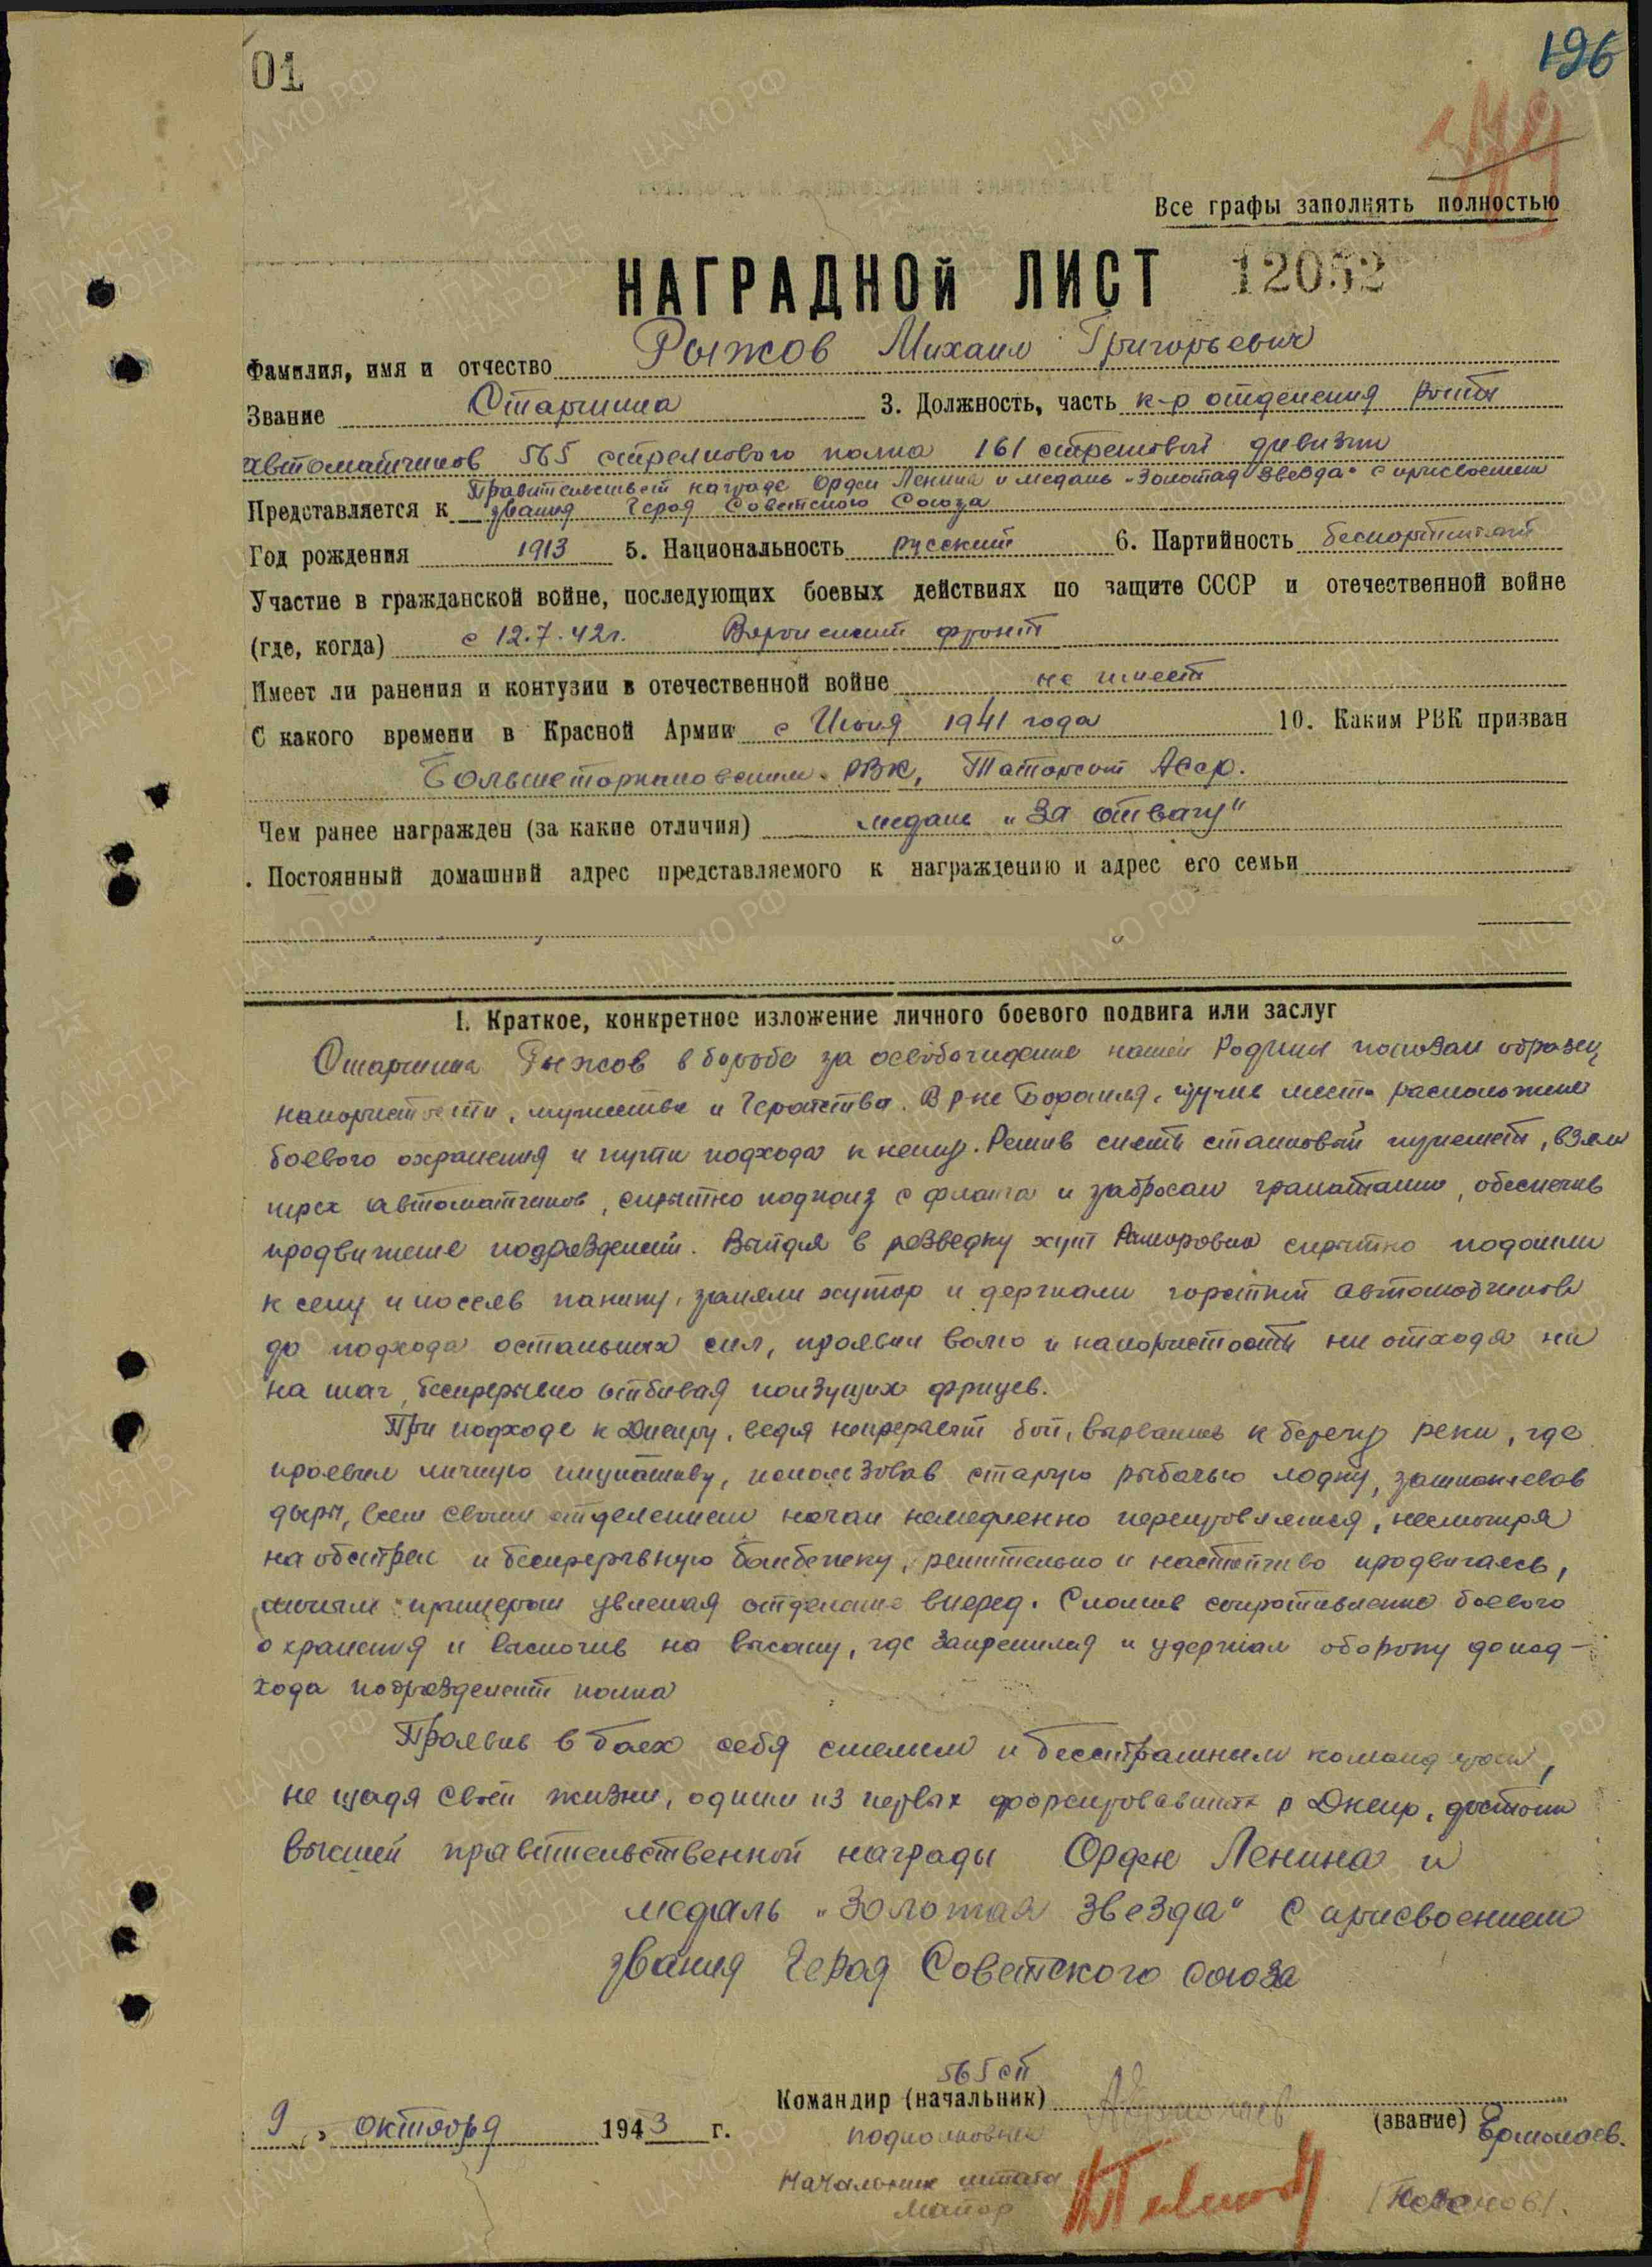 01
196
Все графы заполнять полностью
НАГРАДНОЙ ЛИСТ 12052
Фамилия, имя и отчество Рыжов Михаил Григорьевич
Звание Старшина 3. Должность, часть к-р отделения роты
автоматчиков 565 стрелкового полка 161 стрелковой дивизии
Правительствен награде Орден Ленина и медаль „Золотая Звезда“ с присвоением
Представляется к звания Героя Советского Союза
Год рождения 1913 5. Национальность русский 6. Партийность беспартийный
Участие в гражданской войне, последующих боевых действиях по защите СССР и отечественной войне
(где, когда) с 12.7.42г. Воронежский фронт
Имеет ли ранения и контузии в отечественной войне не имеет
С какого времени в Красной Армии с Июня 1941 года 10. Каким РВК призван
Большетархановским РВК, Татарской Асср.
Чем ранее награжден (за какие отличия) медаль „За отвагу“
. Постоянный домашний адрес представляемого к награждению и адрес его семьи
I. Краткое, конкретное изложение личного боевого подвига или заслуг
Старшина Рыжов в борьбе за освобождение нашей Родины показал образец
напористости, мужества и Геройства. В р-не Боромля, изучив место расположение
боевого охранения и пути подхода к нему. Решив снять станковый пулемет, взял
трех автоматчиков, скрытно подполз с фланга и забросал гранатами, обеспечив
продвижение подразделений. Выйдя в разведку хут скрытно подошли
к селу и посеяв панику, заняли хутор и держали горсткой автоматчиков
до подхода остальных сил, проявил волю и напористость ни отходя ни
на шаг, беспрерывно отбивая ползущих фрицев.
При подходе к Днепру, ведя непрерывн бой, вырвались к берегу реки, где
проявил личную инициативу, использовав старую рыбачью лодку, зашпаклевав
дыры, всем своим отделением начал немедленно переправляться, несмотря
на обстрел и беспрерывную бомбежку, решительно и настойчиво продвигаясь,
личным примером увлекая отделение вперед. Сломив сопротивление боевого
охранения и выскочив на высоту, где закрепился и удержал оборону до под-
хода подразделений полка
Проявив в боях себя смелым и бесстрашным командиром,
не щадя своей жизни, одним из первых форсировавших р Днепр, достоин
высшей правительственной награды Орден Ленина и
медаль „Золотая Звезда“ с присвоением
звания Героя Советского Союза
565 сп
Командир (начальник) (звание) Ермолаев.
9 октября 1943 г.
подполковник
Начальник штаба
майор